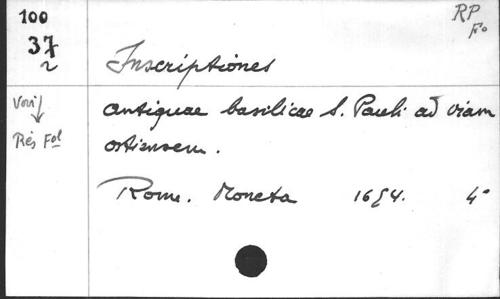 100
37
2
RP
Fo
Inscriptiones
Voir
Rés Fol
antiquae basilicae S. Pauli ad viam
ostiensem.
Rome. Moneta 1654. 4°